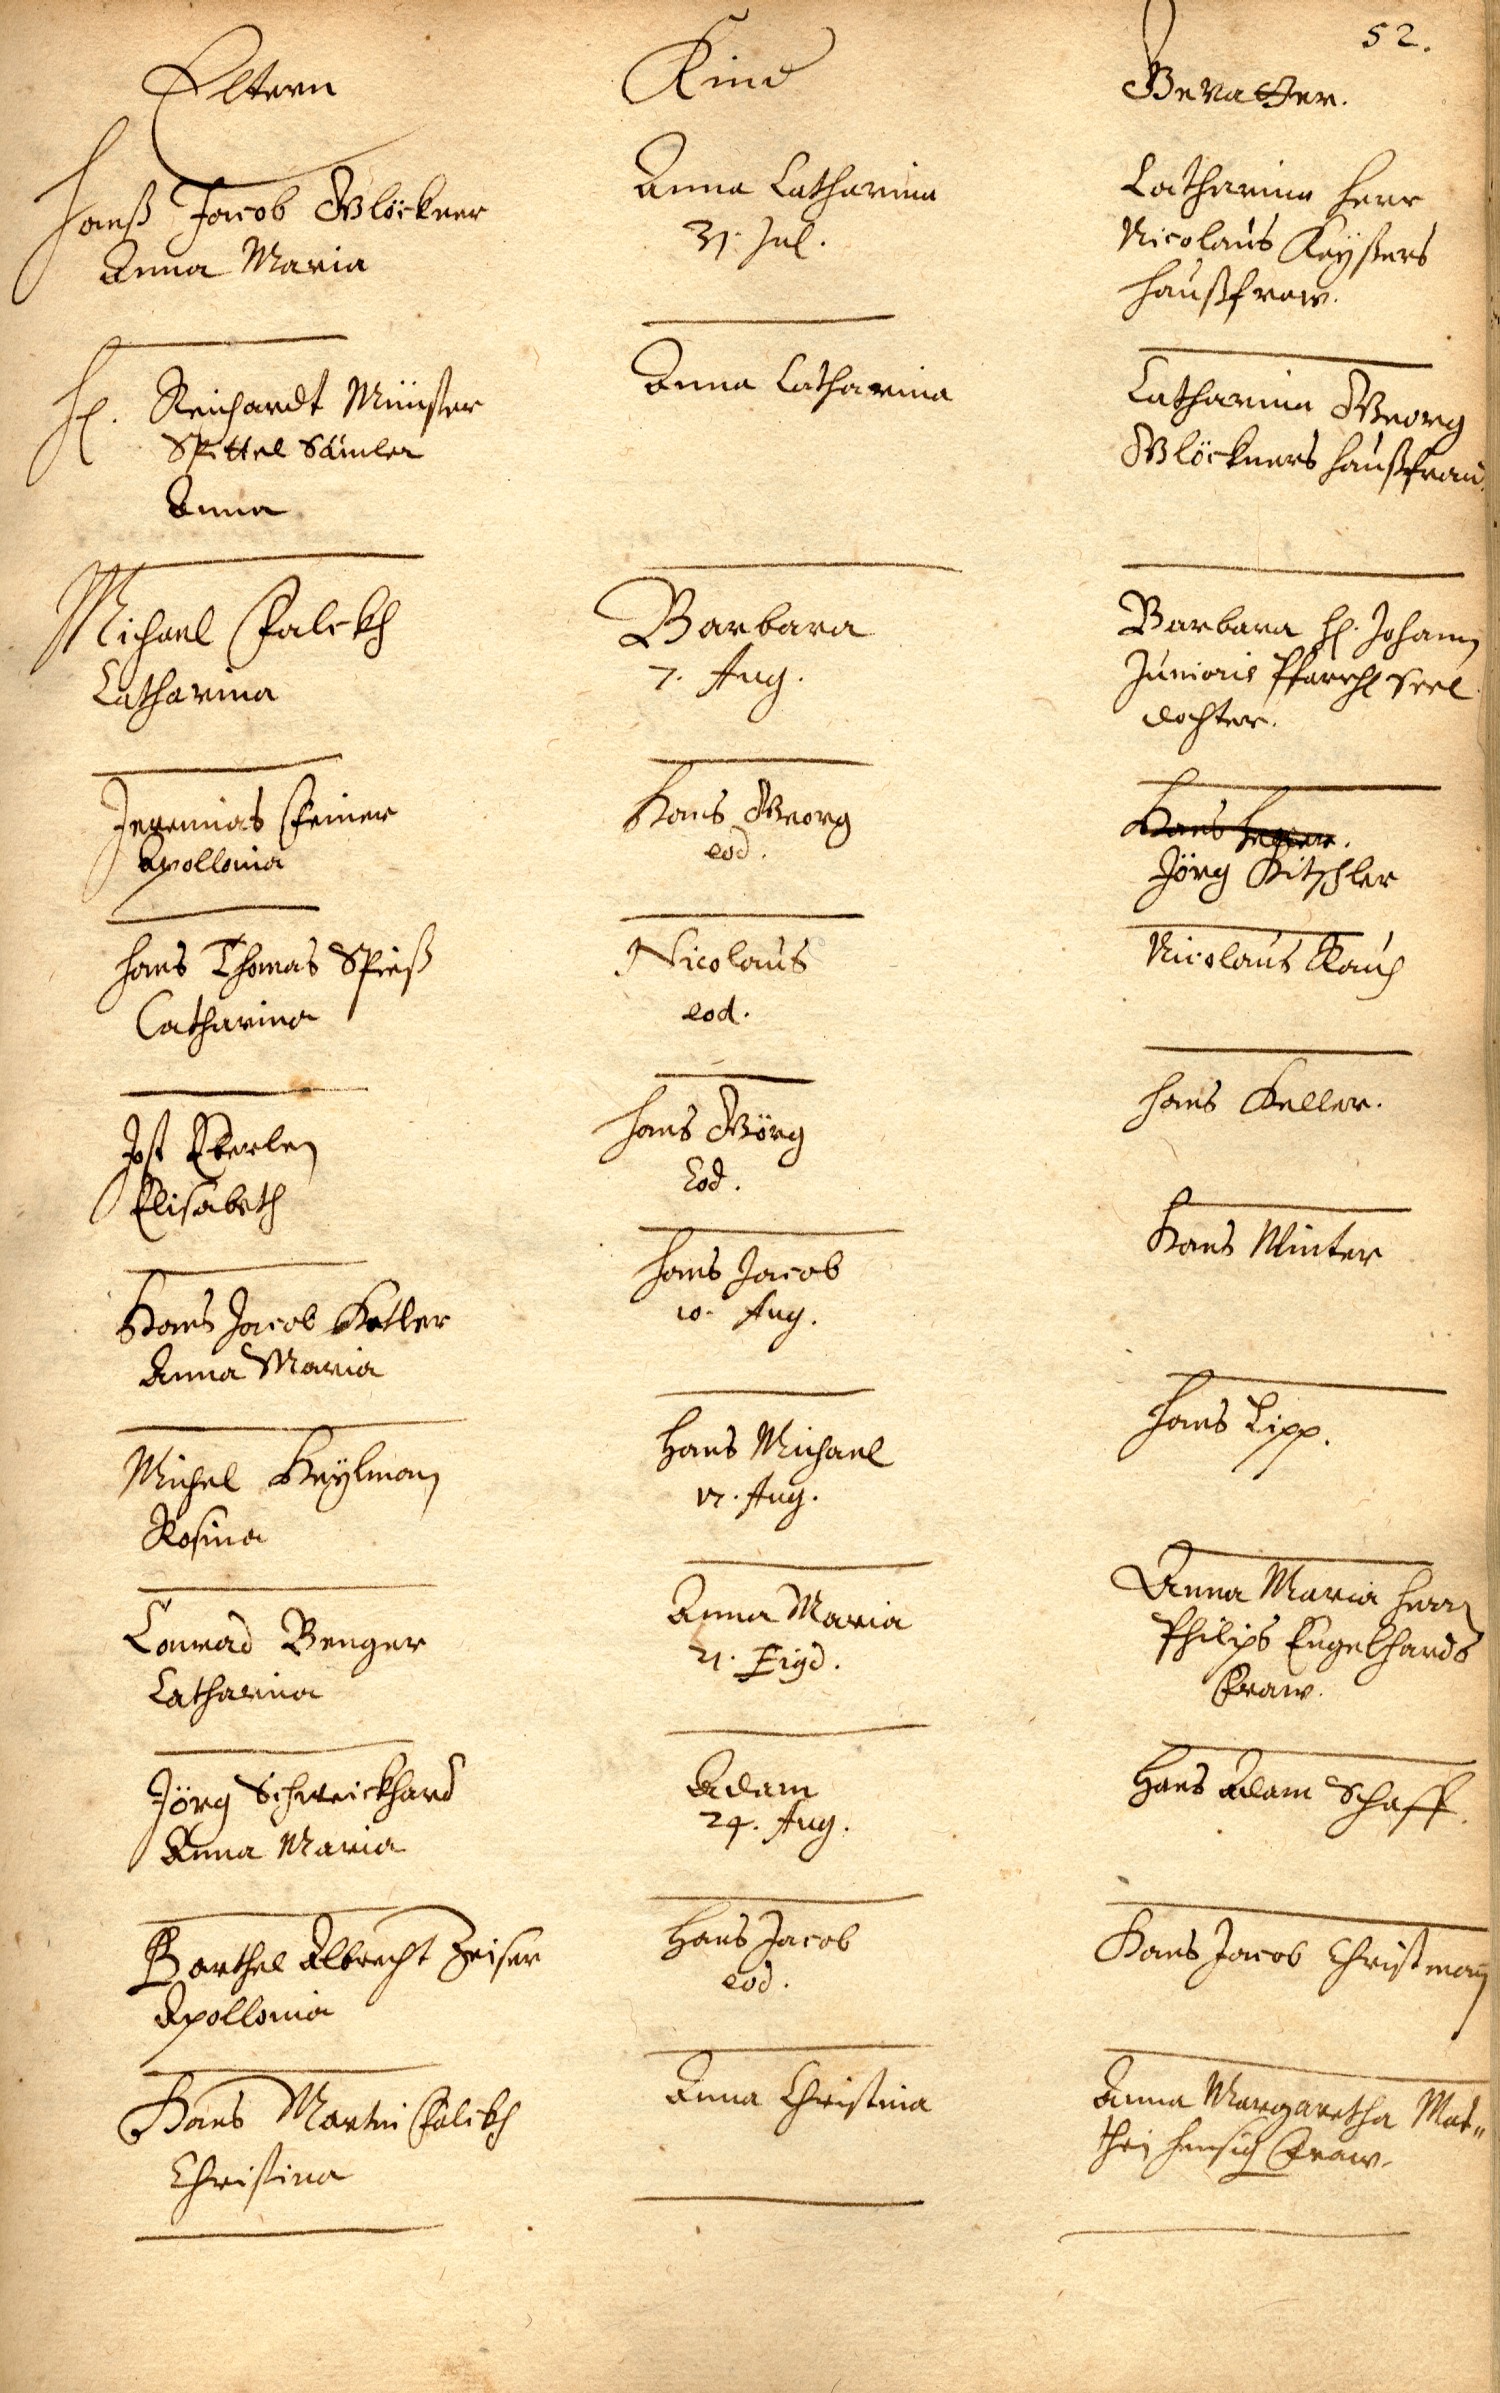 52.
Eltern
Kind
Gevatter.
Hanß Jacob Glöckner
Anna Maria
Anna Catharina
31. Jul.
Catharina Herr
Nicolaus Keyßers
haußfraw.
H. Reichardt Münster
Spittel
Anna
Anna Catharina
Catharina Georg
Glöckners haußfrau
Michael Falckh
Catharina
Barbara
7. Aug.
Barbara H. Johann
Junioris Pfarrh seel
dochter.
Jeremias Feiner
Apollonia
Hans Georg
eod.
Hans
Jörg Kitschler
Hans Thomas Spieß
Catharina
Nicolaus
eod.
Nicolaus Rauch
Jost Eberlen
Elisabeth
Hans Görg
Eod.
Hans Keller.
Hans Jacob Kotler
Anna Maria
Hans Jacob
10. Aug.
Hans Winter
Michel Heylman
Rosina
Hans Michael
17. Aug.
Hans Lipp.
Conrad Benger
Catharina
Anna Maria
21.
Anna Maria Herrn
Philips Engelhards
Fraw.
Jörg Schweickhard
Anna Maria
Adam
24. Aug.
Hans Adam Schaff.
Barthel Albrecht Zeiser
Apollonia
Hans Jacob
eod.
Hans Jacob Christman
Hans Martin Falckh
Christina
Anna Christina
Anna Margaretha Mat=
thei Fraw.